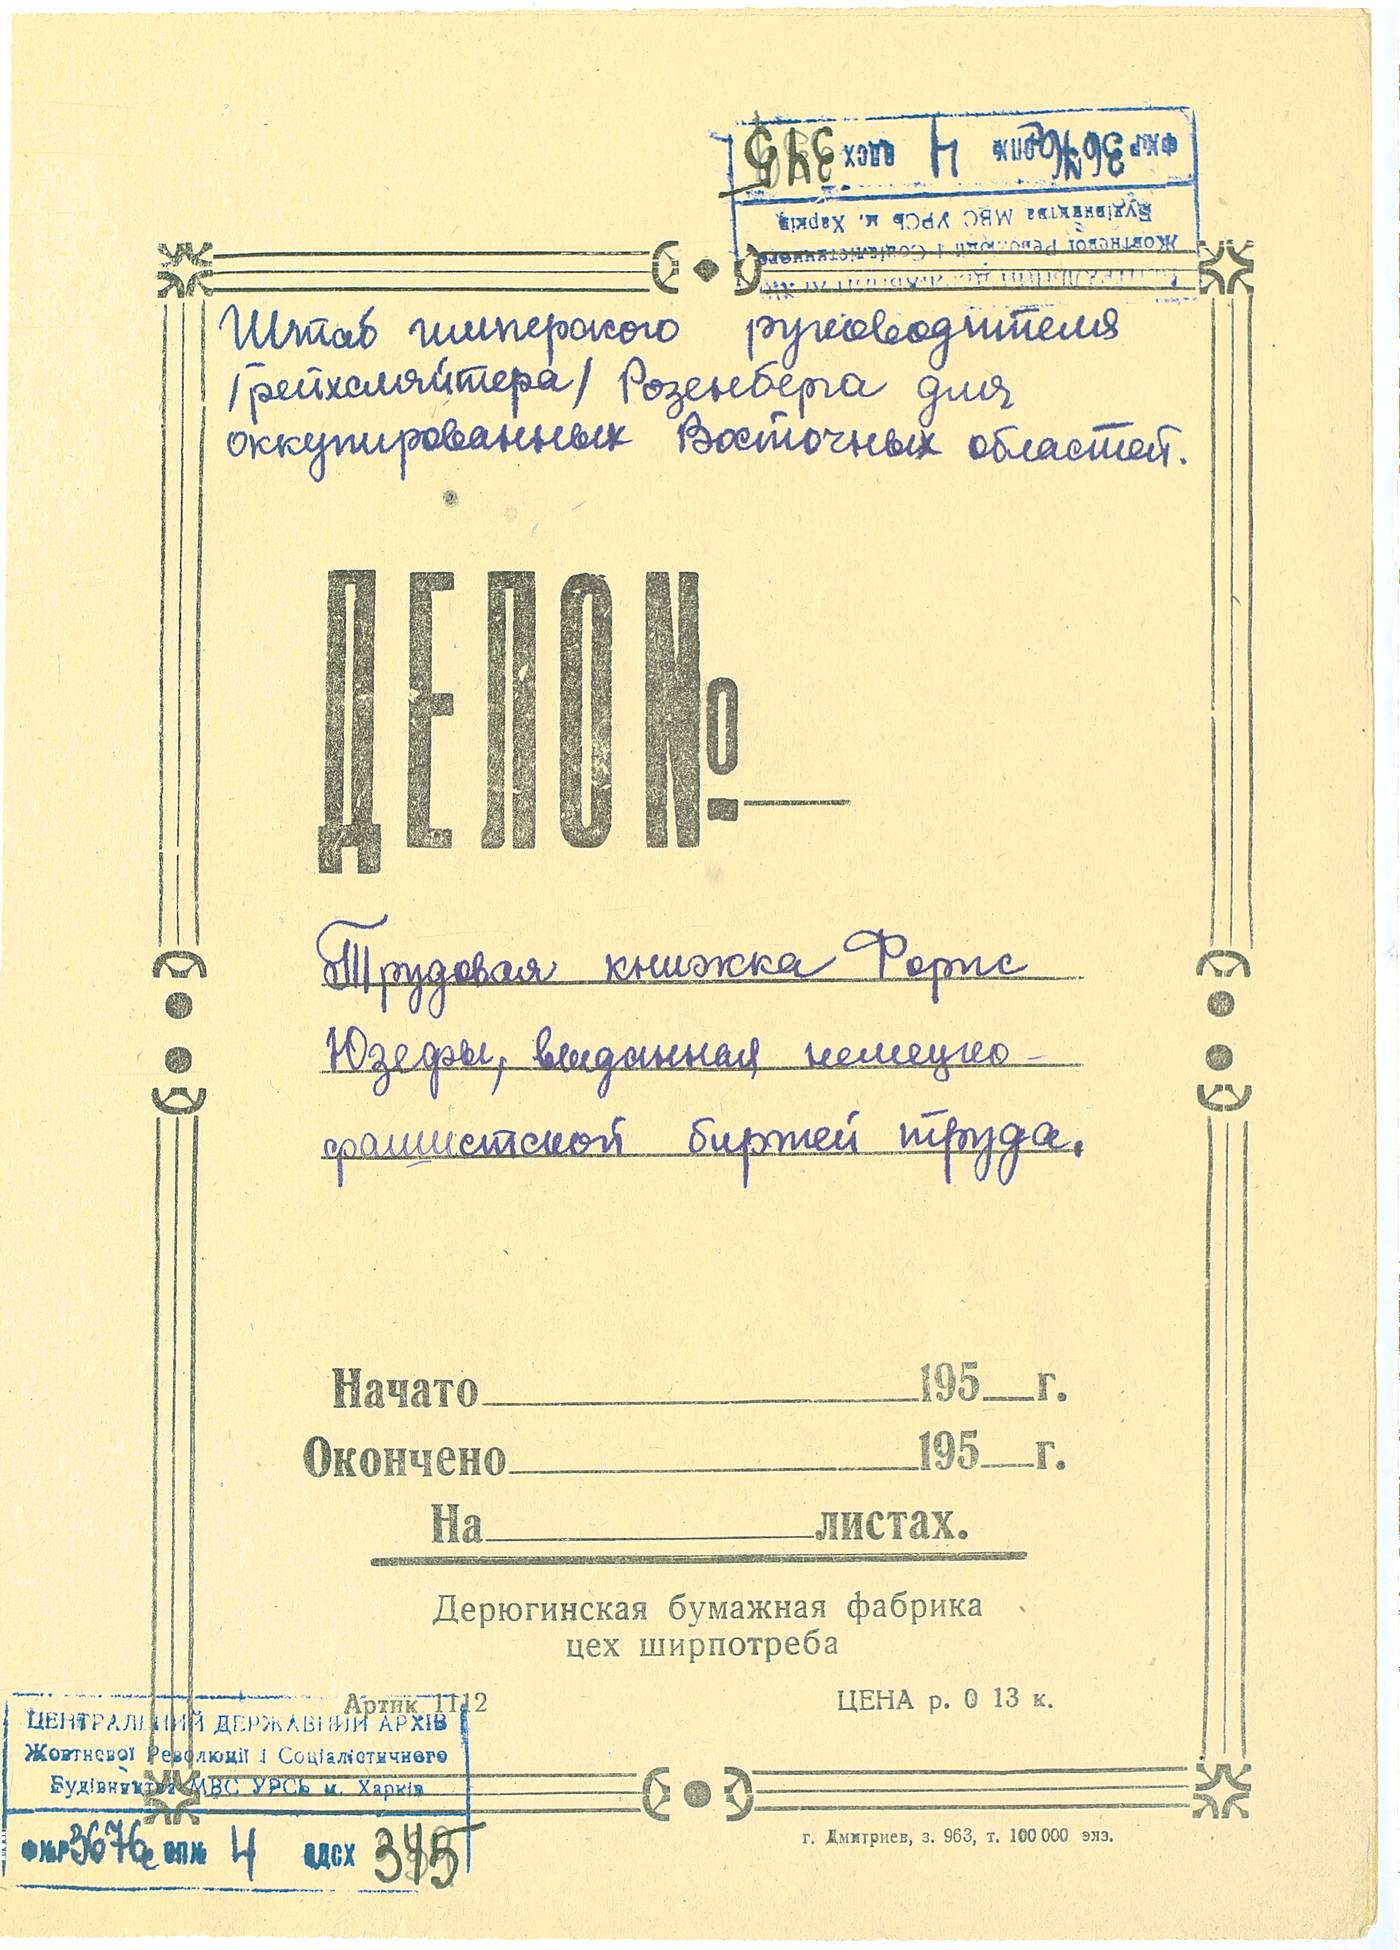 ФР 3676с ОПИС 4 ОДСХ 345
Жовтневої Революції і Соціалістичного
Будівництва МВС УРСР м. Харків
Штаб имперского руководителя
/рейхсляйтера/ Розенберга для
оккупированных Восточных областей.
ДЕЛО №
Трудовая книжка Форис
Юзефы, выданная немецко-
фашистской биржей труда.
Начато 195 г.
Окончено 195 г.
На листах.
Дерюгинская бумажная фабрика
цех ширпотреба
Артик 1112 ЦЕНА р. 0 13 к.
ЦЕНТРАЛЬНИЙ ДЕРЖАВНИЙ АРХІВ
Жовтневої Революції і Соціалістичного
Будівництва МВС УРСР м. Харків
3676с 4 ОДСХ 345
г. Дмитриев, з. 963, т. 100 000 экз.